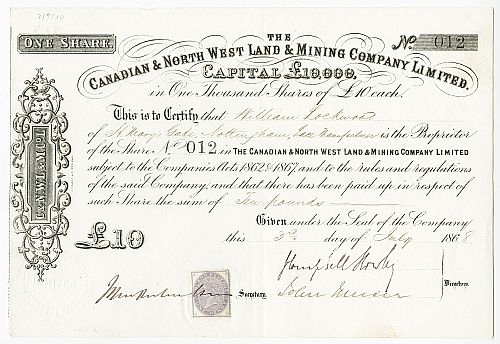 7/9/10
ONE SHARE
THE
No. 012
CANADIAN & NORTH WEST LAND & MINING COMPANY LIMITED.
CAPITAL £10,000.
in One Thousand Shares of £10 each.
This is to Certify that William Lockwood
of St Marys Gate Nottingham, is the Proprietor
of the Share No 012 in THE CANADIAN & NORTH WEST LAND & MINING COMPANY LIMITED
subject to the Companies Acts 1862 & 1867, and to the rules and regulations
of the said Company, and that there has been paid up in respect of
such Share the sum of Ten pounds
Given under the Seal of the Company
£10
this 3rd day of July 1868
Directors.
Secretary. John